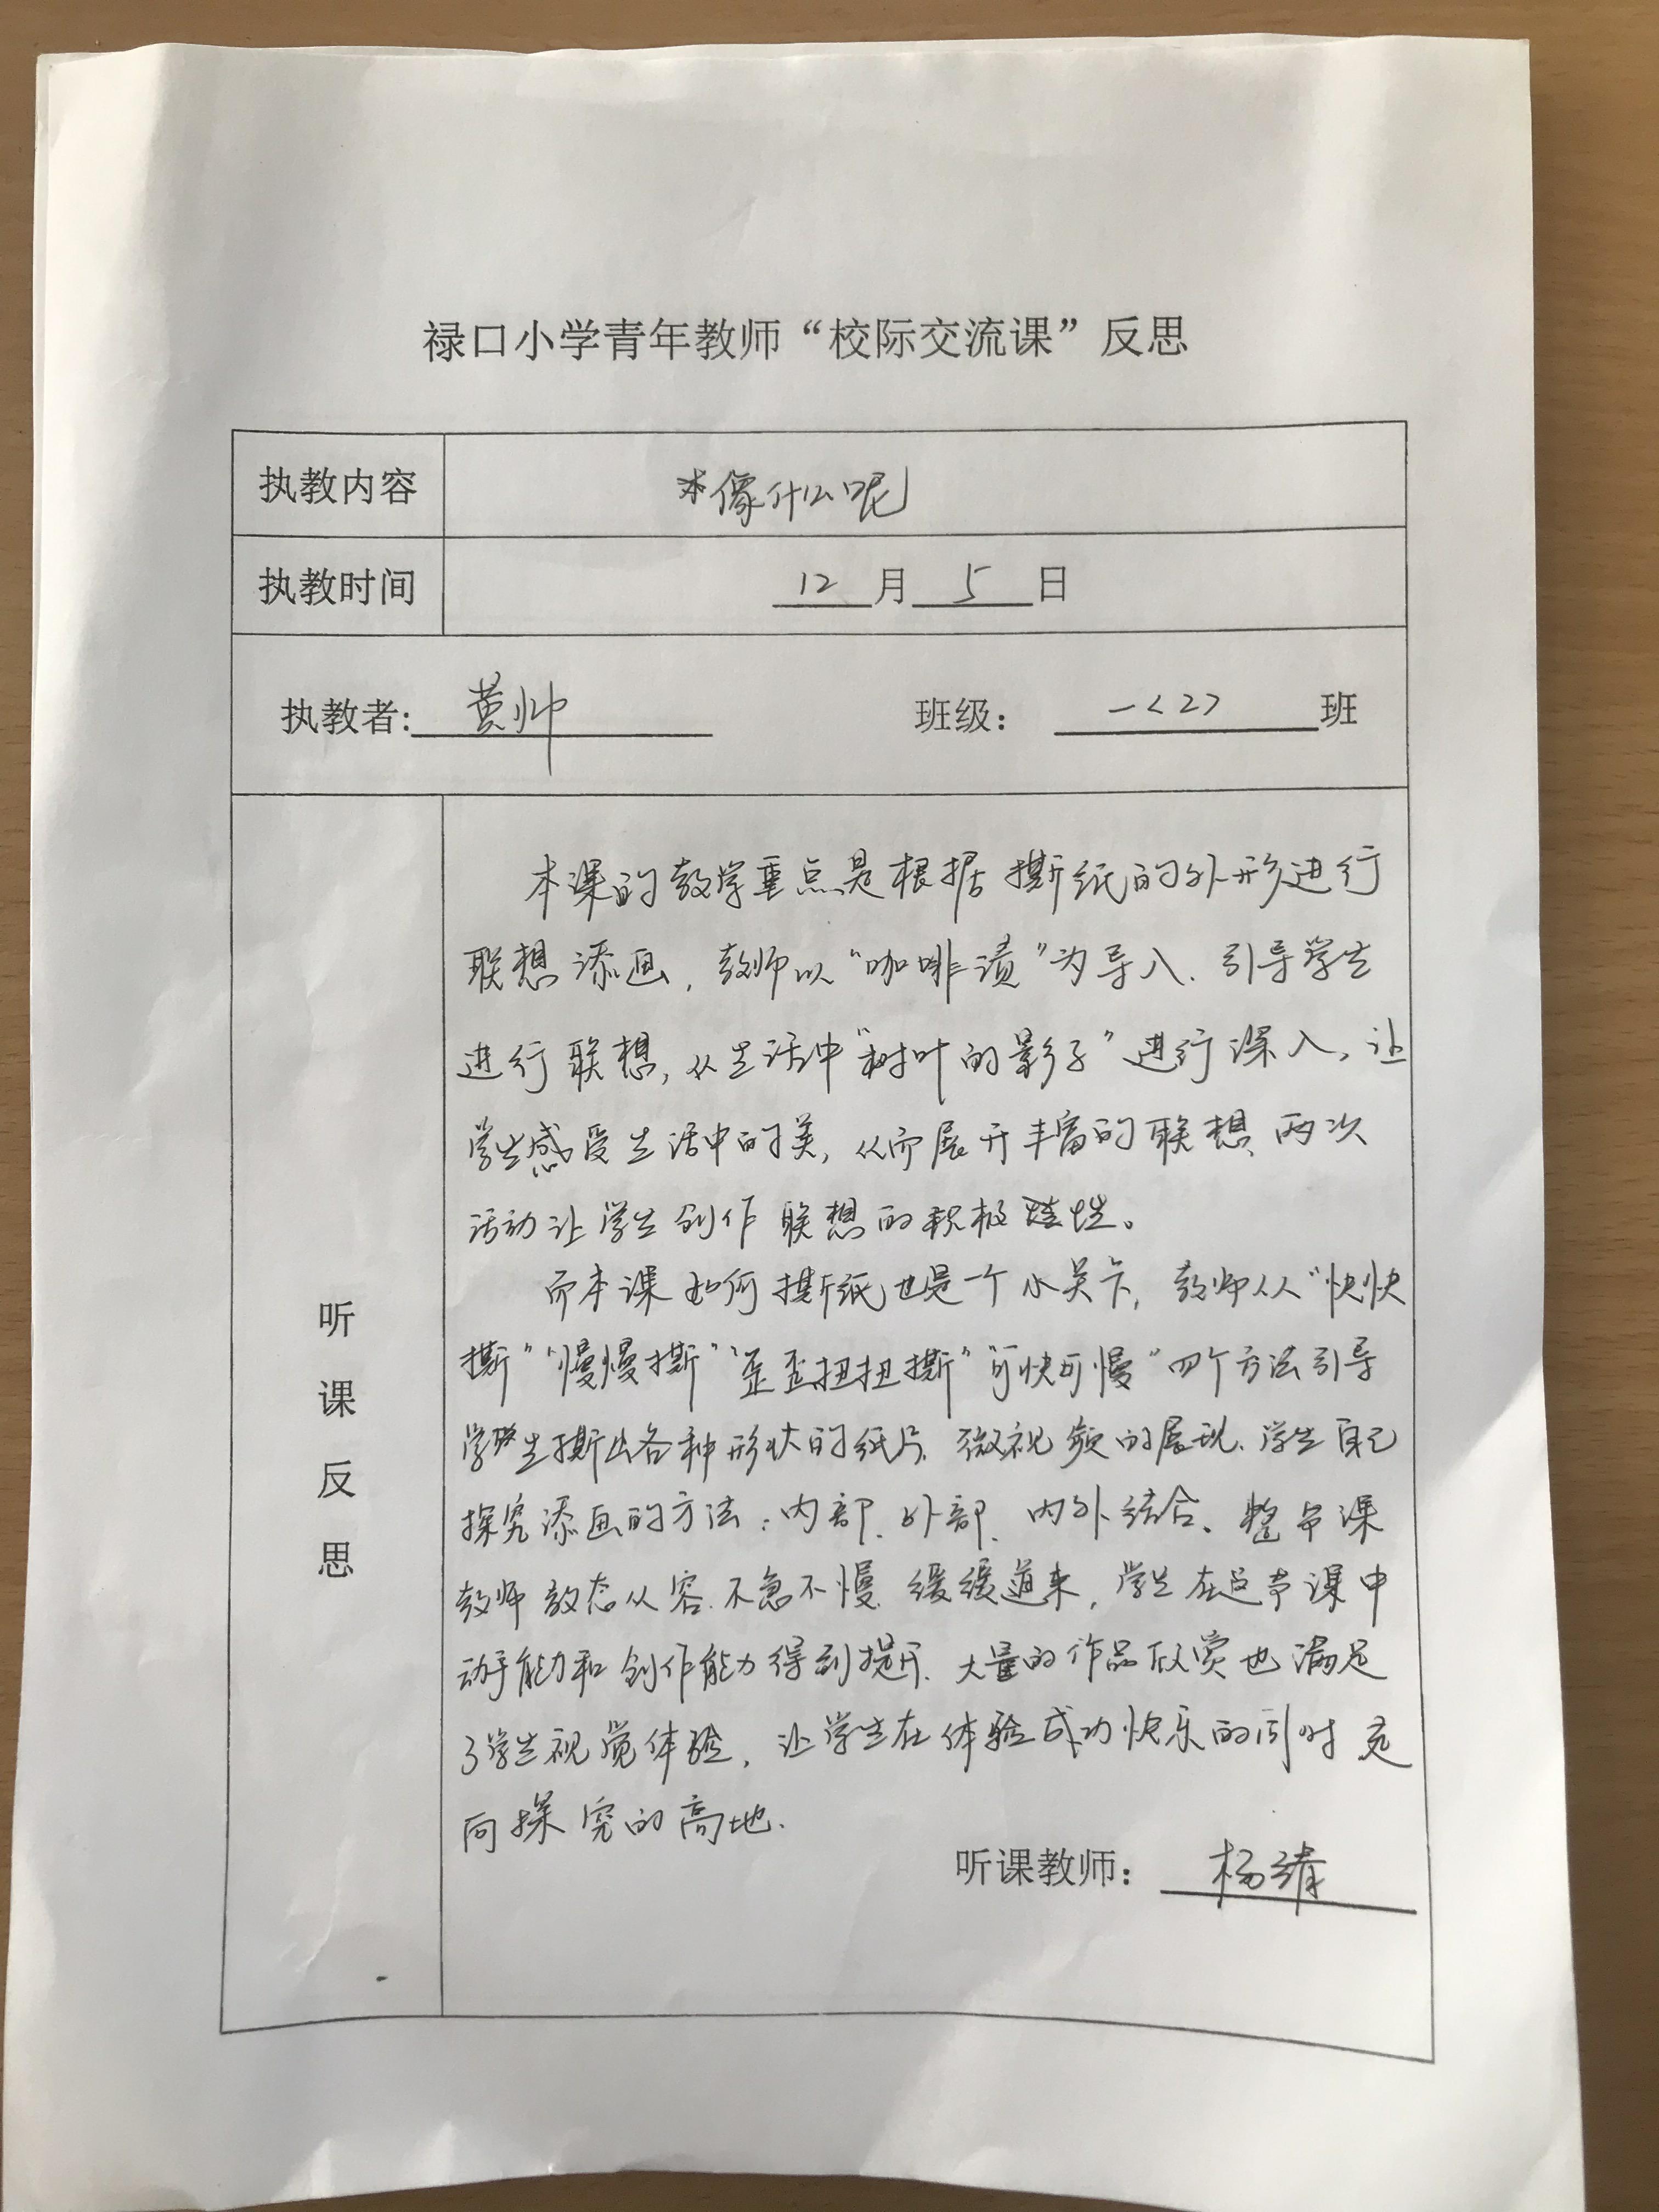 禄口小学青年教师“校际交流课”反思
执教内容 像什么呢
执教时间 12月5日
执教者: 黄帅 班级: 一<2>班
听课反思
本课的教学重点是根据撕纸的外形进行
联想添画,教师以“咖啡渍”为导入、引导学生
进行联想,从生活中“树叶的影子”进行深入,让
学生感受生活中的美,从而展开丰富的联想、两次
活动让学生创作联想的积极性。
而本课如何撕纸也是一个小关卡,教师从“快快
撕”“慢慢撕”“歪歪扭扭撕”“可快可慢”四个方法引导
学生撕出各种形状的纸片、微视频的展现、学生自己
探究添画的方法:内部、外部、内外结合、整节课
教师教态从容、不急不慢、缓缓道来,学生在这节课中
动手能力和创作能力得到提升、大量的作品欣赏也满足
了学生视觉体验,让学生在体验成功快乐的同时
向探究的高地.
听课教师: 杨靖